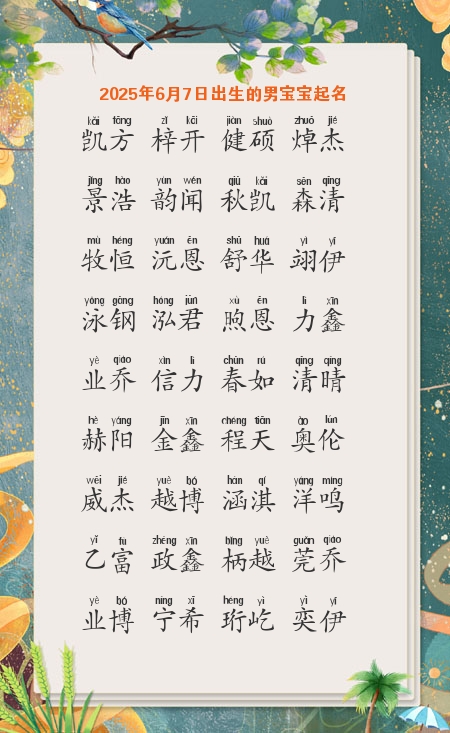 2025年6月7日出生的男宝宝起名
kǎi fāng zǐ kāi jiàn shuò zhuō jié
凯方 梓开 健硕 焯杰
jǐng hào yùn wén qiū kǎi sēn qīng
景浩 韵闻 秋凯 森清
mù héng yuán ēn shū huá yì yī
牧恒 沅恩 舒华 翊伊
yǒng gāng hóng jūn xù ēn lì xīn
泳钢 泓君 煦恩 力鑫
yè qiáo xìn lì chūn rú qīng qíng
业乔 信力 春如 清晴
hè yáng jīn xīn chéng tiān ào lún
赫阳 金鑫 程天 奥伦
wēi jié yuè bó hán qí yáng míng
威杰 越博 涵淇 洋鸣
yǐ fù zhèng xīn bǐng yuè guān qiáo
乙富 政鑫 柄越 莞乔
yè bó níng xī héng yì yì yī
业博 宁希 珩屹 奕伊